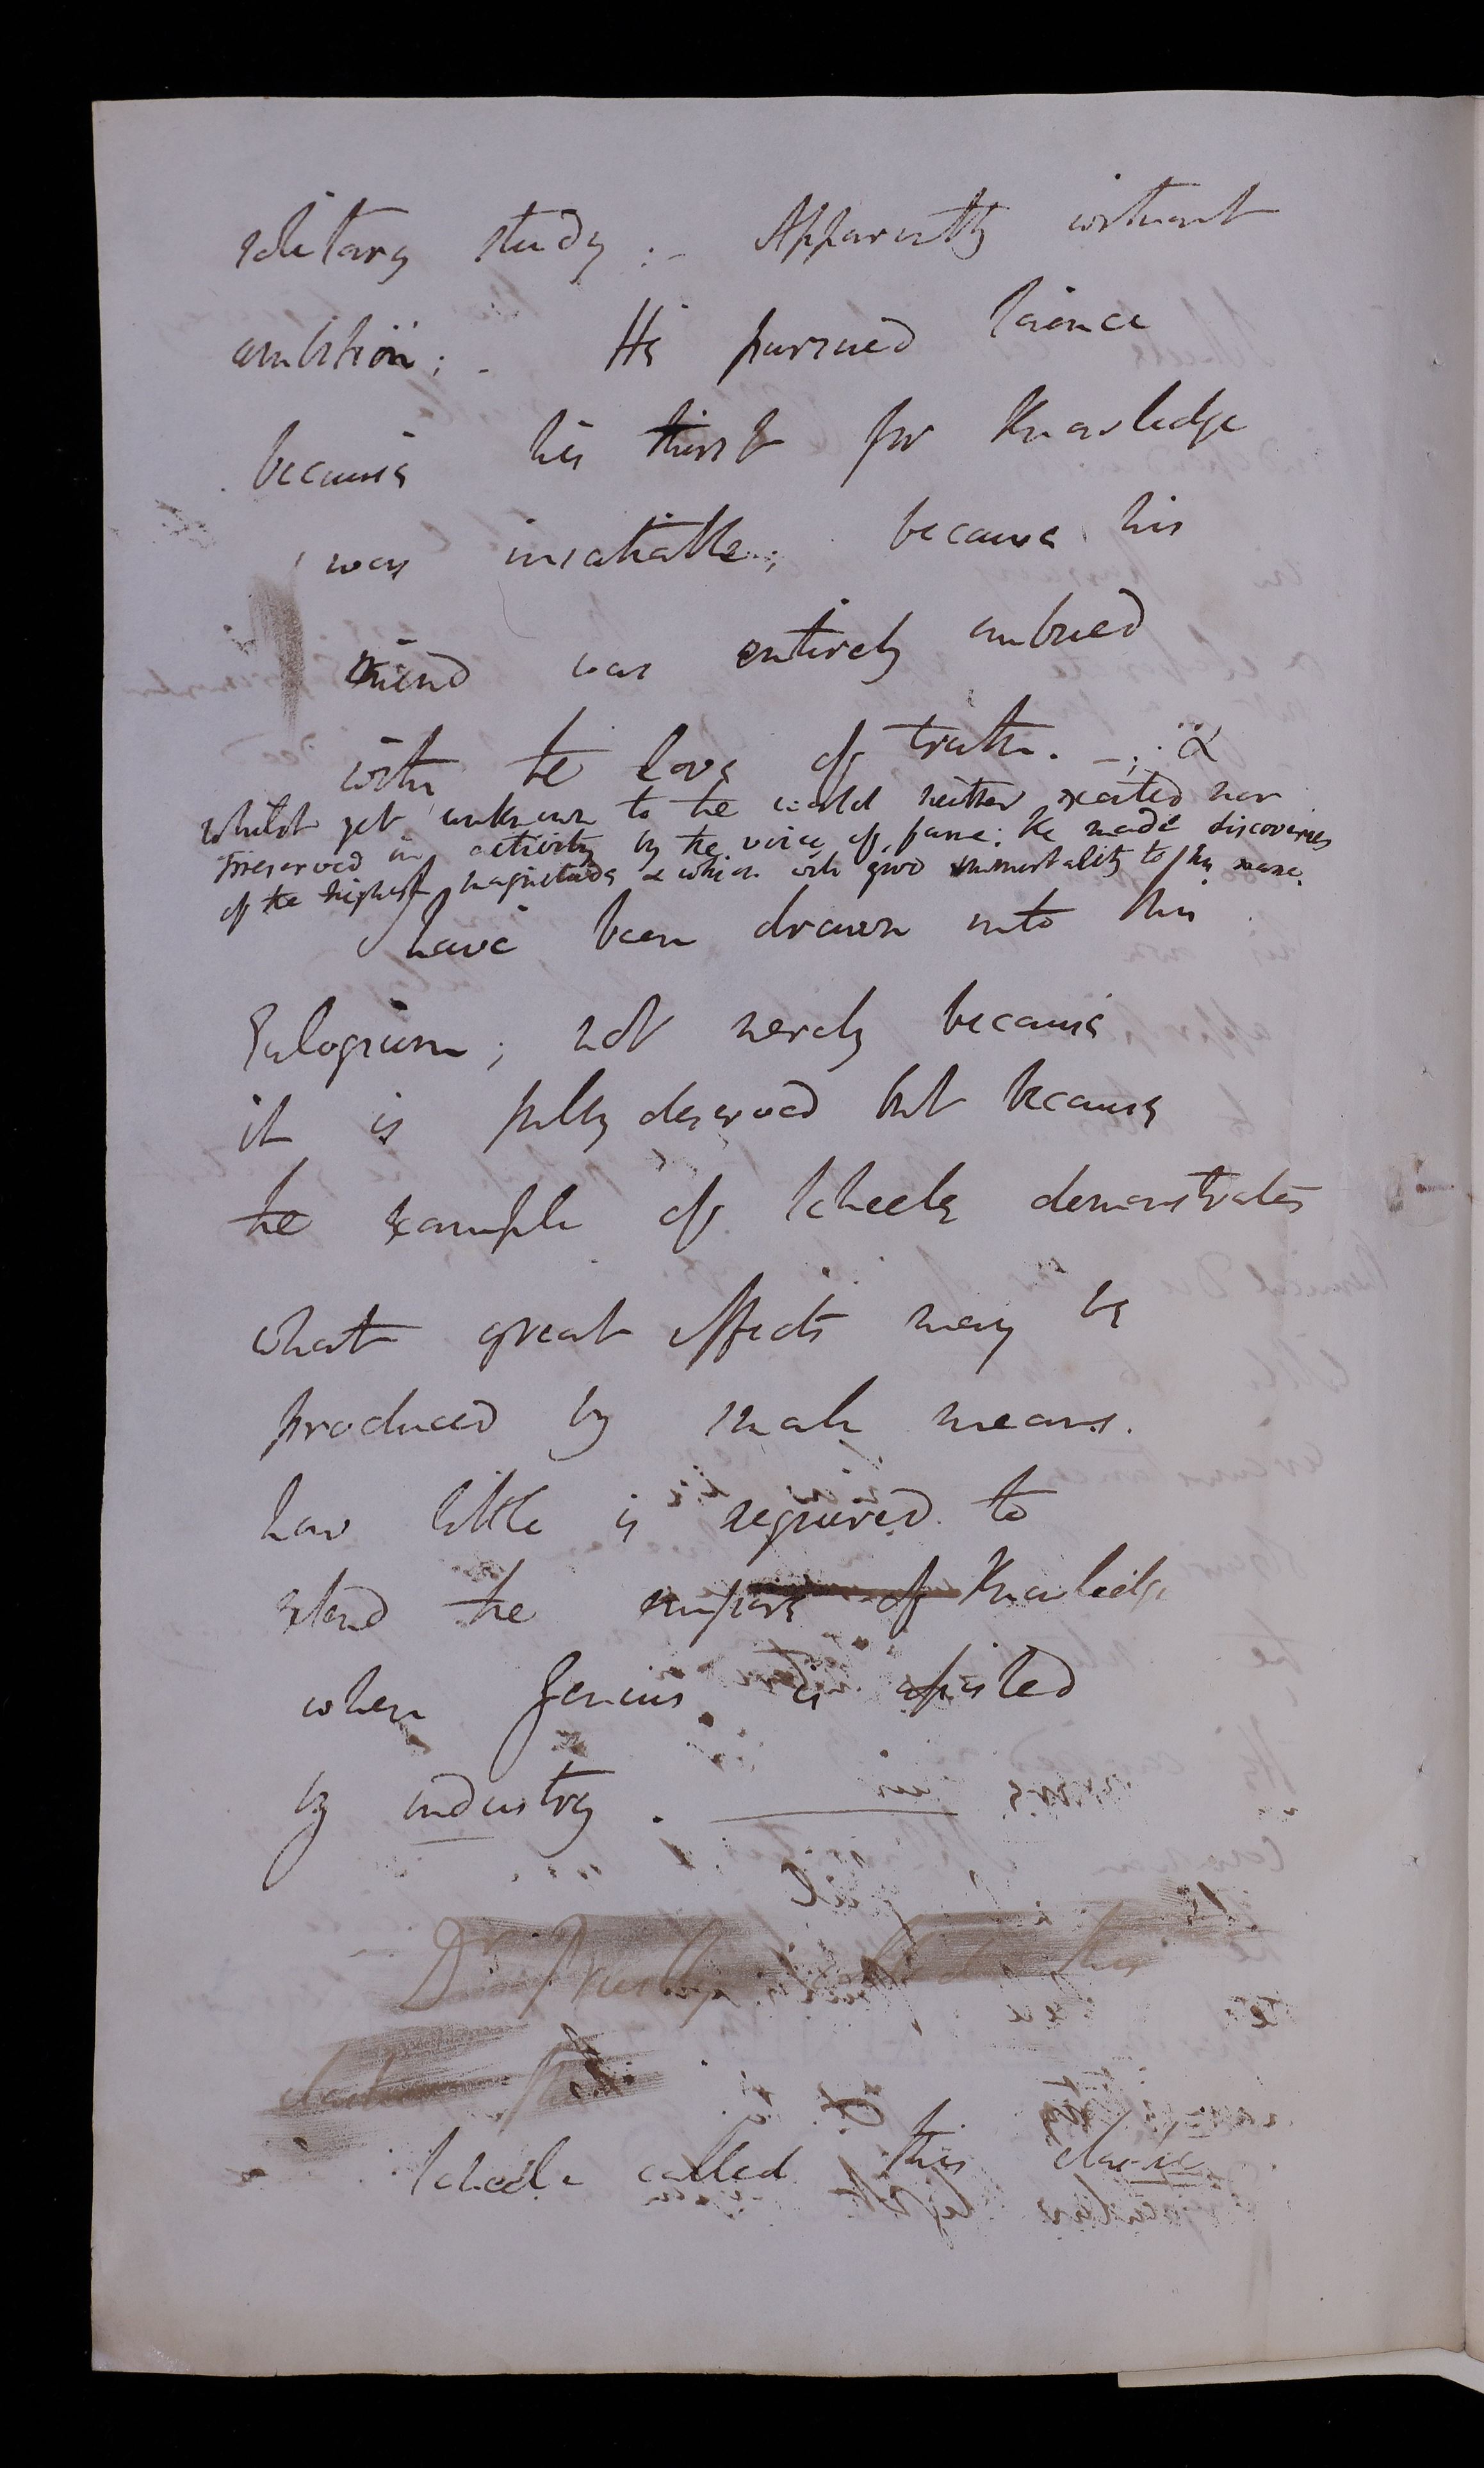 solitary study :- Apparently without
ambition; - He pursued Science
because his thirst for Knowledge
was insatiable; because his
mind was entirely imbued
with the love of truth. - ; &
whilst yet unknown to the world neither excited nor
preserved in activity by the voice of fame: He made discoveries
of the highest magnitude & which will give immortality to his name.
I have been drawn into this
Eulogium; not merely because
it is fully deserved but because
the example of Scheele demonstrates
what great effects may be
produced by small means.
how little is required to
extend the empire of Knowledge
when Genius is assisted
by industry.
Dr Priestley this
Scheele called this